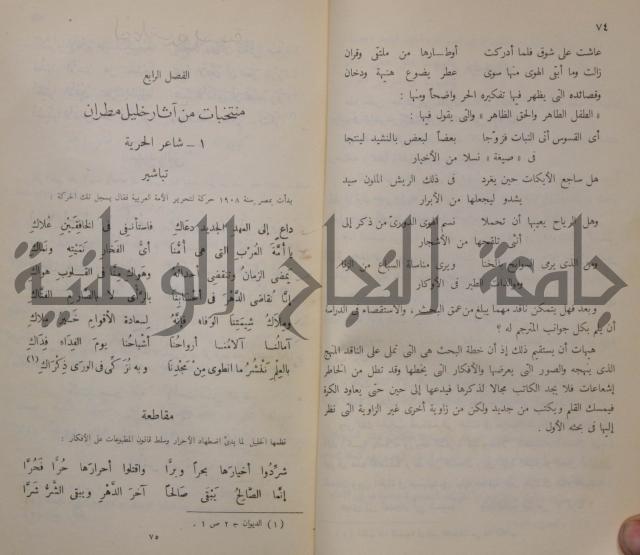 ٧٤
عاشت على شوق فلما أدركت أوطارها من ملتقى وقران
زالت وما أبقى الهوى منها سوى عطر يضوع هنيهة ودخان
وقصائده التى يظهر فيها تفكيره الحر واضحاً ومنها :
« الطفل الطاهر والحق الظاهر » والتى يقول فيها :
أى القسوس أتى البنات فزوجا بعضاً لبعض بالنشيد لينتجا
فى « صيغة » نسلا من الأخيار
هل ساجع الأيكات حين يغرد فى ذلك الريش الملون سيد
يشدو ليجعلها من الأبرار
وهل الرياح يعيبها أن تحملا نسم الهوى من ذكر إلى
أنثى تلقحها من الأشجار
ومن الذى يرعى ويرى مناسلة السباع من
الطير فى الأوكار
وبعد فهل يتمكن ناقد مهما يبلغ من عمق البحث ، والاستقصاء فى الدراسة
أن يلم بكل جوانب المترجم له ؟
هيهات أن يستقيم ذلك إذ أن خطة البحث هى التى تملى على الناقد المنهج
الذى ينهجه والصور التى يعرضها والأفكار التى يخططها وقد تطل من الخاطر
إشعاعات فلا يجد الكاتب مجالا لذكرها فيدعها إلى حين حتى يعاود الكرة
فيمسك القلم ويكتب من جديد ولكن من زاوية أخرى غير الزاوية التى نظر
إليها فى بحثه الأول .
الفصل الرابع
منتخبات من آثار خليل مطران
١ – شاعر الحرية
تباشير
بدأت بمصر سنة ١٩٠٨ حركة لتحرير الأمة العربية فقال يسجل تلك الحركة :
داعٍ إلى العهد الجديد دعاكِ فاستأنفى فى الخافقين علاكِ
يا أمَّةَ العُرْبِ التى هى أمُّنا أىَّ الفخارِ نَمَيْتِهِ ونماكِ
يمضى الزمانُ وتنقضى أحداثُهُ وهواكِ منَّا فى القلوب هواكِ
إنَّا نُقاضِى الدَّهْرَ فى أحسابِنا بالرأى لا بالصارمِ الفتَّاكِ
شِيمَتِنَا الوَفاءُ فإنَّهُ لسعادةِ الأقوامِ خيرُ مِلاكِ
آمالُنا آلامُنا أرواحُنا أشباحُنا يومَ الفِداءِ فداكِ
بالعِلْمِ نَنْشُرُ ما انطوى مِنْ مَجْدِنَا وبه نُزَكِّى فى الورَى ذِكْرَاكِ (١)
مقاطعة
نظمها الخليل لما بدئ اضطهاد الأحرار وسلط قانون المطبوعات على الأفكار :
شرِّدُوا أخيارَها بحراً وبرَّا واقتلوا أحرارَها حُرًّا فَحُرَّا
إنَّما الصَّالحُ يَبْقَى صالحًا آخرَ الدَّهْرِ ويبقى الشَّرُّ شَرَّا
(١) الديوان جـ ٢ ص ١ .
٧٥
جامعة النجاح الوطنية